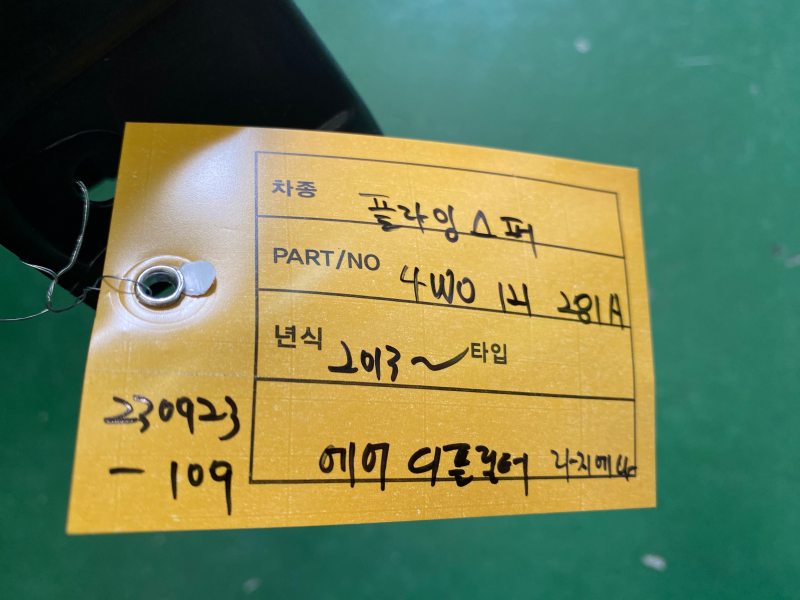 차종 플라잉스퍼
PART/NO 4W0 121 281A
년식 2013~ 타입
에어 디플렉터 라지에타
230923
-109